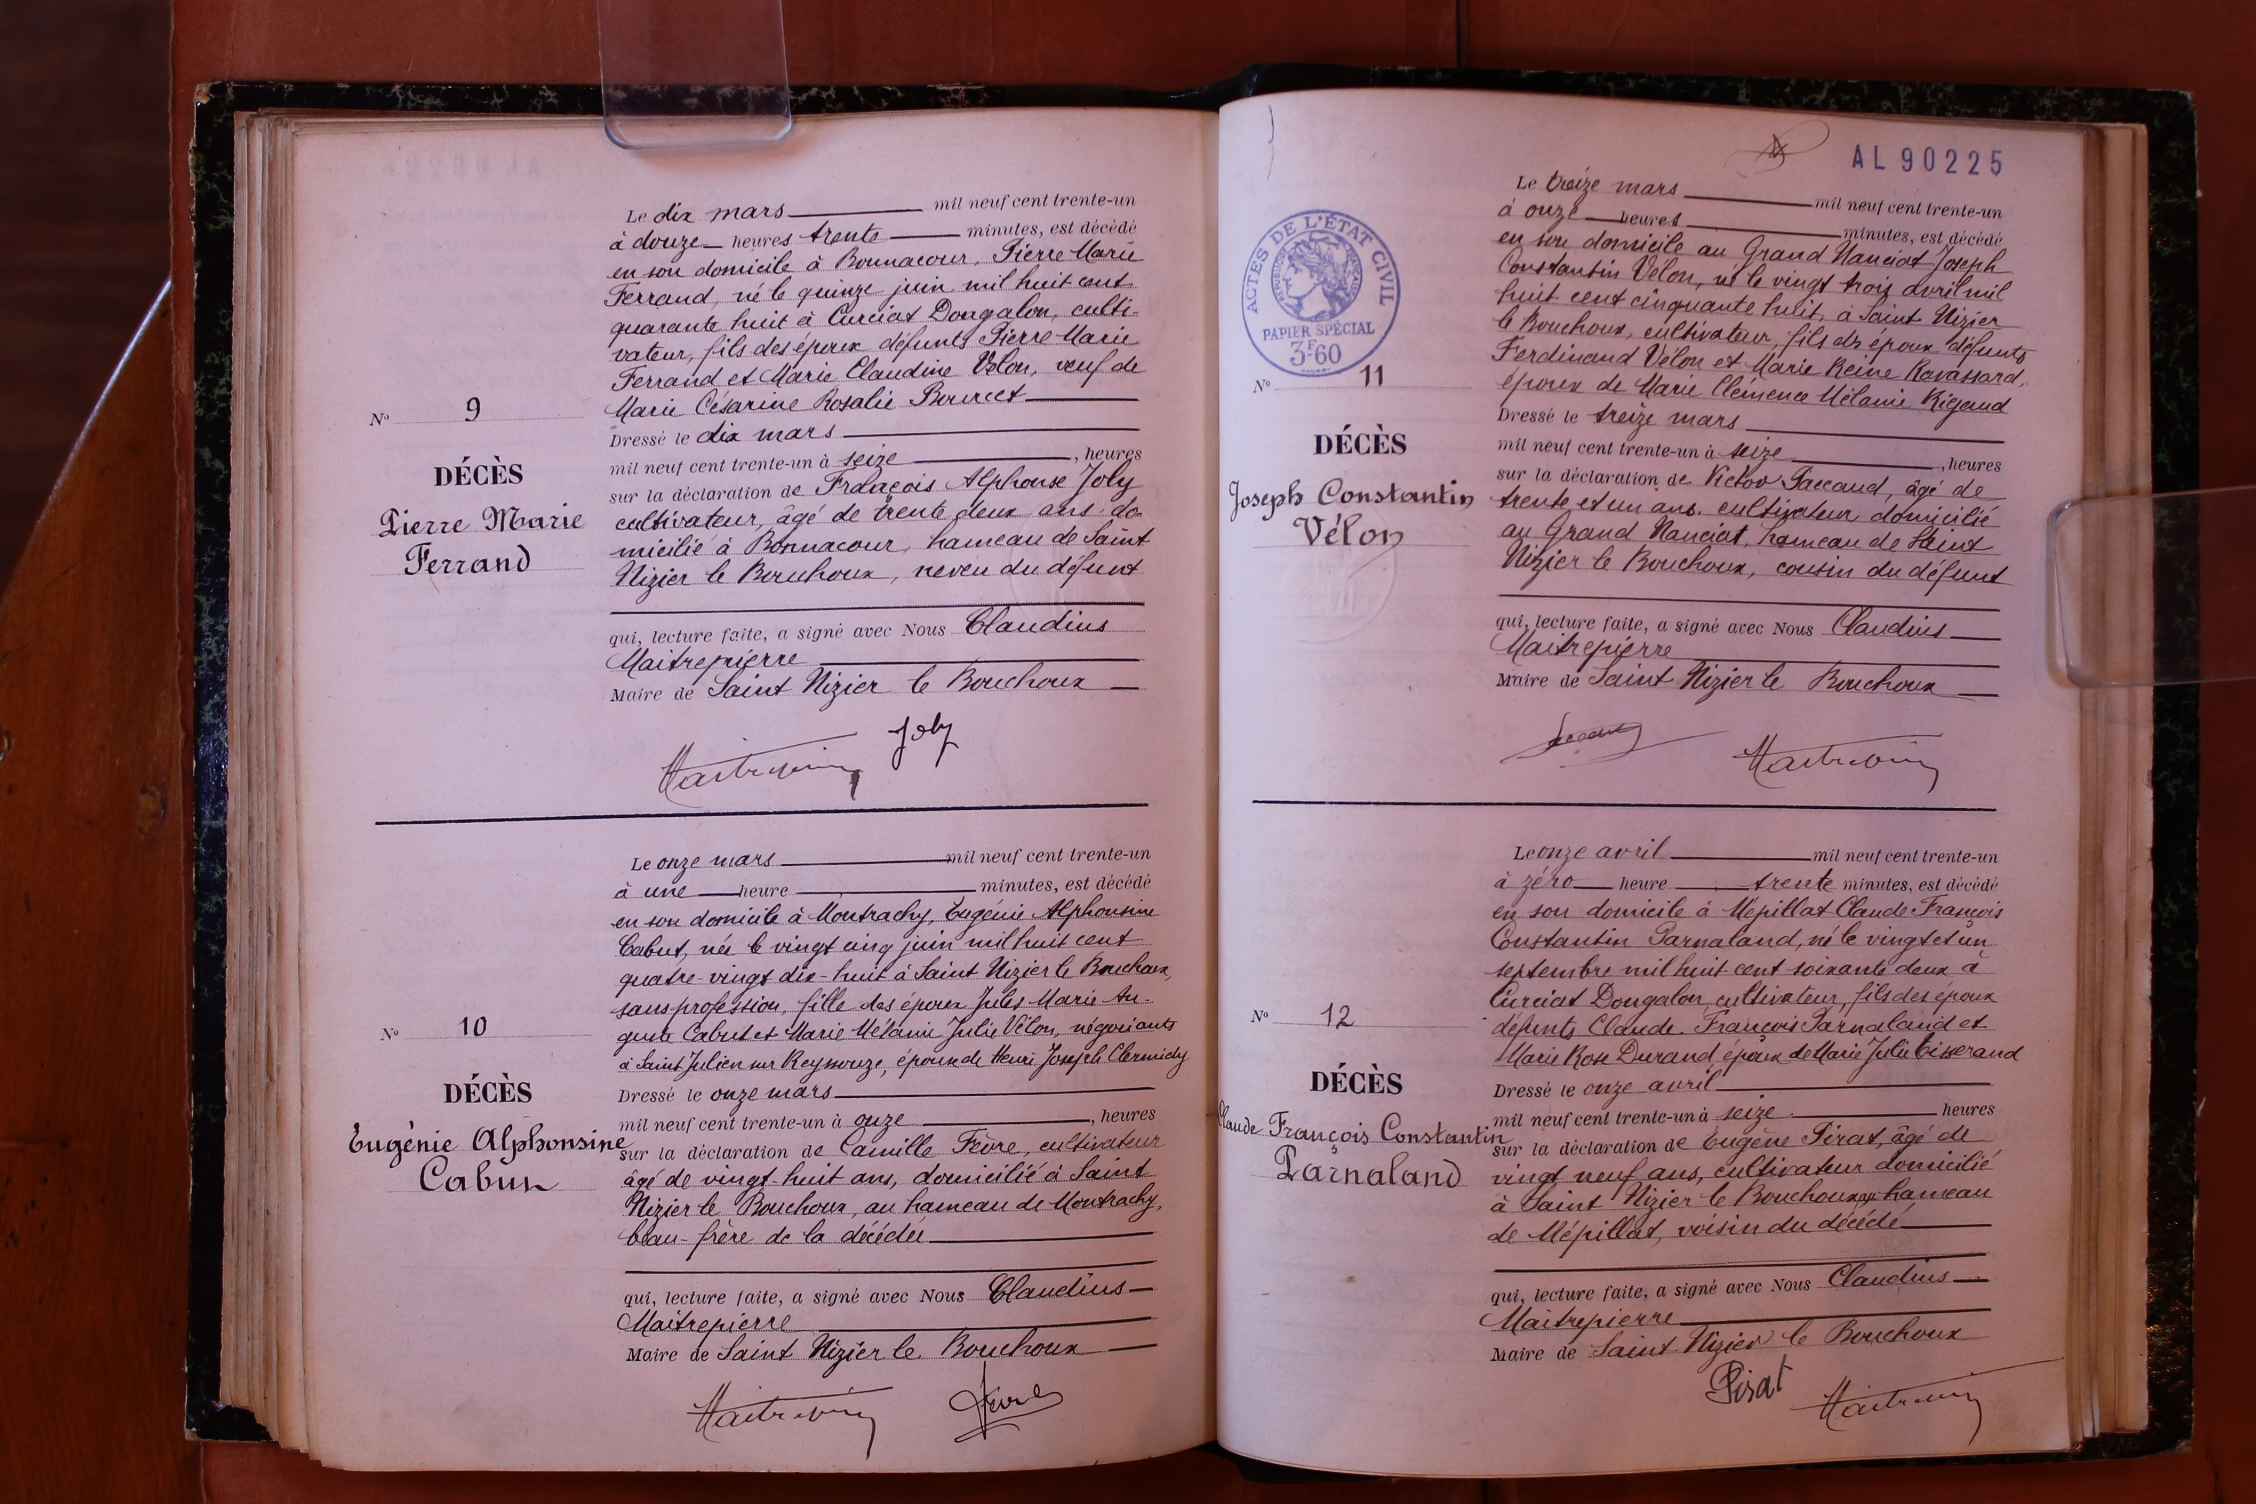 N° 9
DÉCÈS
Pierre Marie
Ferrand
Le dix mars mil neuf cent trente-un
à douze heures trente minutes, est décédé
en son domicile à Bonnacour, Pierre Marie
Ferrand, né le quinze juin mil huit cent
quarante huit à Curciat Dongalon, culti-
vateur, fils des époux défunts Pierre Marie
Ferrand et Marie Claudine Velon, veuf de
Marie Césarine Rosalie Bourcet
Dressé le dix mars
mil neuf cent trente-un à seize, heures
sur la déclaration de François Alphonse Joly
cultivateur, âgé de trente deux ans do
micilié à Bonnacour, hameau de Saint
Nizier le Bouchoux, neveu du défunt
qui, lecture faite, a signé avec Nous Claudius
Maitrepierre
Maire de Saint Nizier le Bouchoux
Joly
N° 10
DÉCÈS
Eugénie Alphonsine
Cabut
Le onze mars mil neuf cent trente-un
à une heure minutes, est décédé
en son domicile à Montrachy, Eugénie Alphonsine
Cabut, née le vingt cinq juin mil huit cent
quatre-vingt dix-huit à Saint Nizier le Bouchoux,
sans profession, fille des époux Jules Marie Au-
guste Cabut et Marie Mélanie Julie Vélon, négociants
à Saint Julien sur Reyssouze, épouse de Henri Joseph Clermidy
Dressé le onze mars
mil neuf cent trente-un à onze, heures
sur la déclaration de Camille Fèvre, cultivateur
âgé de vingt-huit ans, domicilié à Saint
Nizier le Bouchoux, au hameau de Montrachy,
beau-frère de la décédée
qui, lecture faite, a signé avec Nous Claudius
Maitrepierre
Maire de Saint Nizier le Bouchoux
AL 90225
ACTES DE L'ÉTAT CIVIL
PAPIER SPÉCIAL
3F60
N° 11
DÉCÈS
Joseph Constantin
Vélon
Le treize mars mil neuf cent trente-un
à onze heures minutes, est décédé
en son domicile au Grand Nanciat Joseph
Constantin Vélon, né le vingt trois avril mil
huit cent cinquante huit, à Saint Nizier
le Bouchoux, cultivateur, fils des époux défunts
Ferdinand Vélon et Marie Reine Ravassard,
époux de Marie Clémence Mélanie Rigaud
Dressé le treize mars
mil neuf cent trente-un à seize, heures
sur la déclaration de Victor Paccaud, âgé de
trente et un ans. cultivateur domicilié
au Grand Nanciat, hameau de Saint
Nizier le Bouchoux, cousin du défunt
qui, lecture faite, a signé avec Nous Claudius
Maitrepierre
Maire de Saint Nizier le Bouchoux
N° 12
DÉCÈS
Claude François Constantin
Parnaland
Le onze avril mil neuf cent trente-un
à zéro heure trente minutes, est décédé
en son domicile à Mépillat Claude François
Constantin Parnaland, né le vingt et un
septembre mil huit cent soixante deux à
Curciat Dongalon, cultivateur, fils des époux
défunts Claude François Parnaland et
Marie Rose Durand, époux de Marie Julie Tisserand
Dressé le onze avril
mil neuf cent trente-un à seize heures
sur la déclaration de Eugène Pirat, âgé de
vingt neuf ans, cultivateur domicilié
à Saint Nizier le Bouchoux au hameau
de Mépillat, voisin du décédé
qui, lecture faite, a signé avec Nous Claudius
Maitrepierre
Maire de Saint Nizier le Bouchoux
Pirat